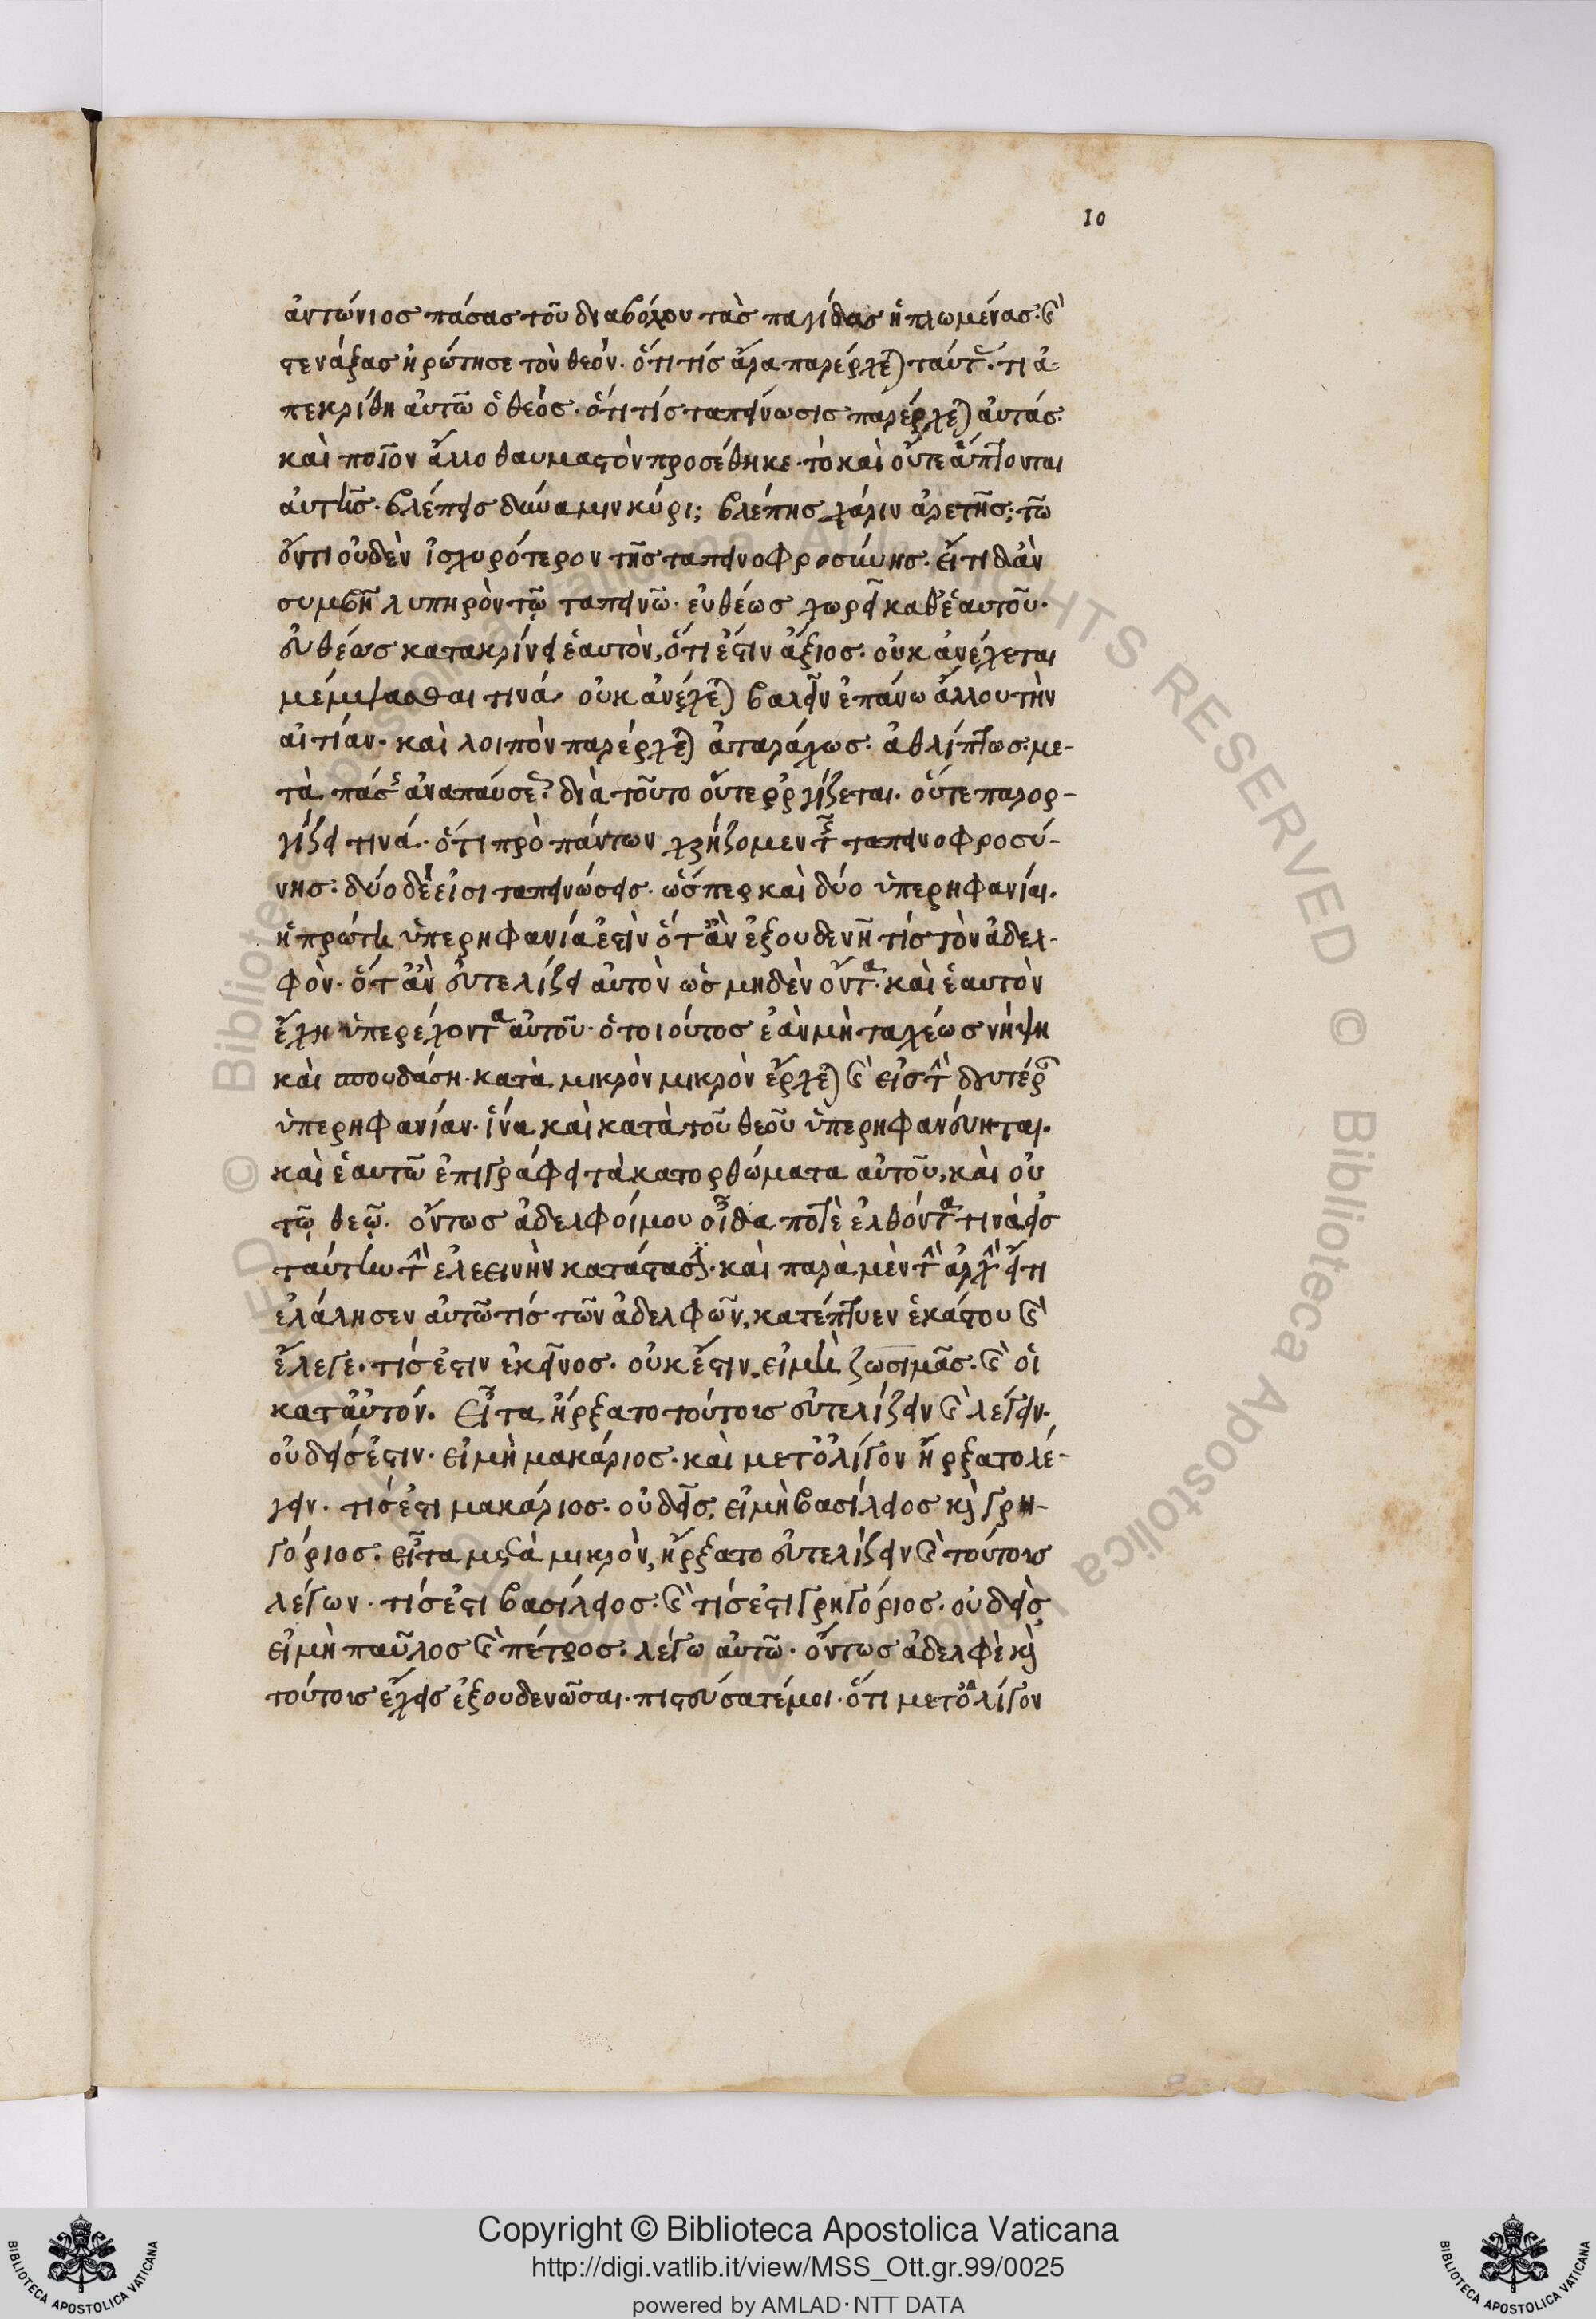 10
ἀντώνιος πάσας τοῦ διαβόλου τὰς παγίδας ἡπλωμένας· καὶ
στενάξας ἠρώτησε τὸν θεόν· ὅτι τίς ἄρα παρέρχεται ταύτας· τί ἀ-
πεκρίθη αὐτῶ ὁ θεός· ὅτι τίς ταπείνωσις παρέρχεται αὐτάς·
καὶ ποῖον ἄλλο θαυμαστὸν προσέθηκε· τὸ καὶ οὔτε ἅπτονται
αὐτῆς· βλέπεις δύναμιν κύρι; βλέπης χάριν ἀρετῆς; τῶ
ὄντι οὐδὲν ἰσχυρότερον τῆς ταπεινοφροσύνης· εἴ τι δἂν
συμβῆ λυπηρὸν τῷ ταπεινῶ· εὐθέως χωρεῖ καθ' ἑαυτοῦ·
εὐθέως κατακρίνει ἑαυτὸν, ὅτι ἐστὶν ἄξιος· οὐκ ἀνέχεται
μέμψασθαι τινά· οὐκ ἀνέχεται βαλεῖν ἐπάνω ἄλλου τὴν
αἰτίαν· καὶ λοιπὸν παρέρχεται ἀταράχως· ἀθλίπτως· με-
τὰ πάσης ἀναπαύσεως· διὰ τοῦτο οὔτε ὀργίζεται· οὔτε παρορ-
γίζει τινά· ὅτι πρὸ πάντων χρήζομεν τῆς ταπεινοφροσύ-
νης· δύο δὲ εἰσι ταπεινώσεις· ὥσπερ καὶ δύο ὑπερηφανίαι·
ἡ πρώτη ὑπερηφανία ἐστὶν ὅτ' ἂν ἐξουδενῆ τίς τὸν ἀδελ-
φὸν· ὅτ' ἂν εὐτελίζει αὐτὸν ὡς μηδὲν ὄντα· καὶ ἑαυτὸν
ἔχη ὑπερέχοντα αὐτοῦ· ὁ τοιούτος ἐὰν μὴ ταχέως νήψη
καὶ σπουδάση· κατὰ μικρὸν μικρὸν ἔρχεται καὶ εἰς τὴν δευτέραν
ὑπερηφανίαν· ἵνα καὶ κατὰ τοῦ θεοῦ ὑπερηφανεύηται·
καὶ ἑαυτῶ ἐπιγράφει τὰ κατορθώματα αὐτοῦ, καὶ οὐ
τῷ θεῷ· ὄντως ἀδελφοί μου οἶδα ποτὲ ἐλθόντα τινὰ εἰς
ταύτην τὴν ἐλεεινὴν κατάστασιν· καὶ παρὰ μὲν τὴν ἀρχὴν εἴ τι
ἐλάλησεν αὐτῶ τίς τῶν ἀδελφῶν, κατέπτυεν ἑκάστου καὶ
ἔλεγε· τίς ἐστιν ἐκεῖνος· οὐκ ἔστιν, εἰ μὴ ζωσιμᾶς· καὶ οἱ
κατ' αὐτόν· Εἶτα ἤρξατο τούτοις εὐτελίζειν καὶ λέγειν·
οὐδείς ἐστιν· εἰ μὴ μακάριος· καὶ μετ' ὀλίγον ἤρξατο λέ-
γειν· τίς ἐστι μακάριος· οὐδεῖς, εἰ μὴ βασίλειος καὶ γρη-
γόριος· εἶτα μετὰ μικρὸν, ἤρξατο εὐτελίζειν καὶ τούτοις
λέγων· τίς ἐστι βασίλειος· καὶ τίς ἐστι γρηγόριος· οὐδεὶς
εἰ μὴ παῦλος καὶ πέτρος· λέγω αὐτῶ· ὄντως ἀδελφὲ καὶ
τούτοις ἔχεις ἐξουδενῶσαι· πιστεύσατέ μοι· ὅτι μετ' ὀλίγον
© Biblioteca Apostolica Vaticana ALL RIGHTS RESERVED © Biblioteca Apostolica Vaticana ALL RIGHTS RESERVED
Copyright © Biblioteca Apostolica Vaticana
http://digi.vatlib.it/view/MSS_Ott.gr.99/0025
powered by AMLAD·NTT DATA
BIBLIOTECA APOSTOLICA VATICANA
BIBLIOTECA APOSTOLICA VATICANA